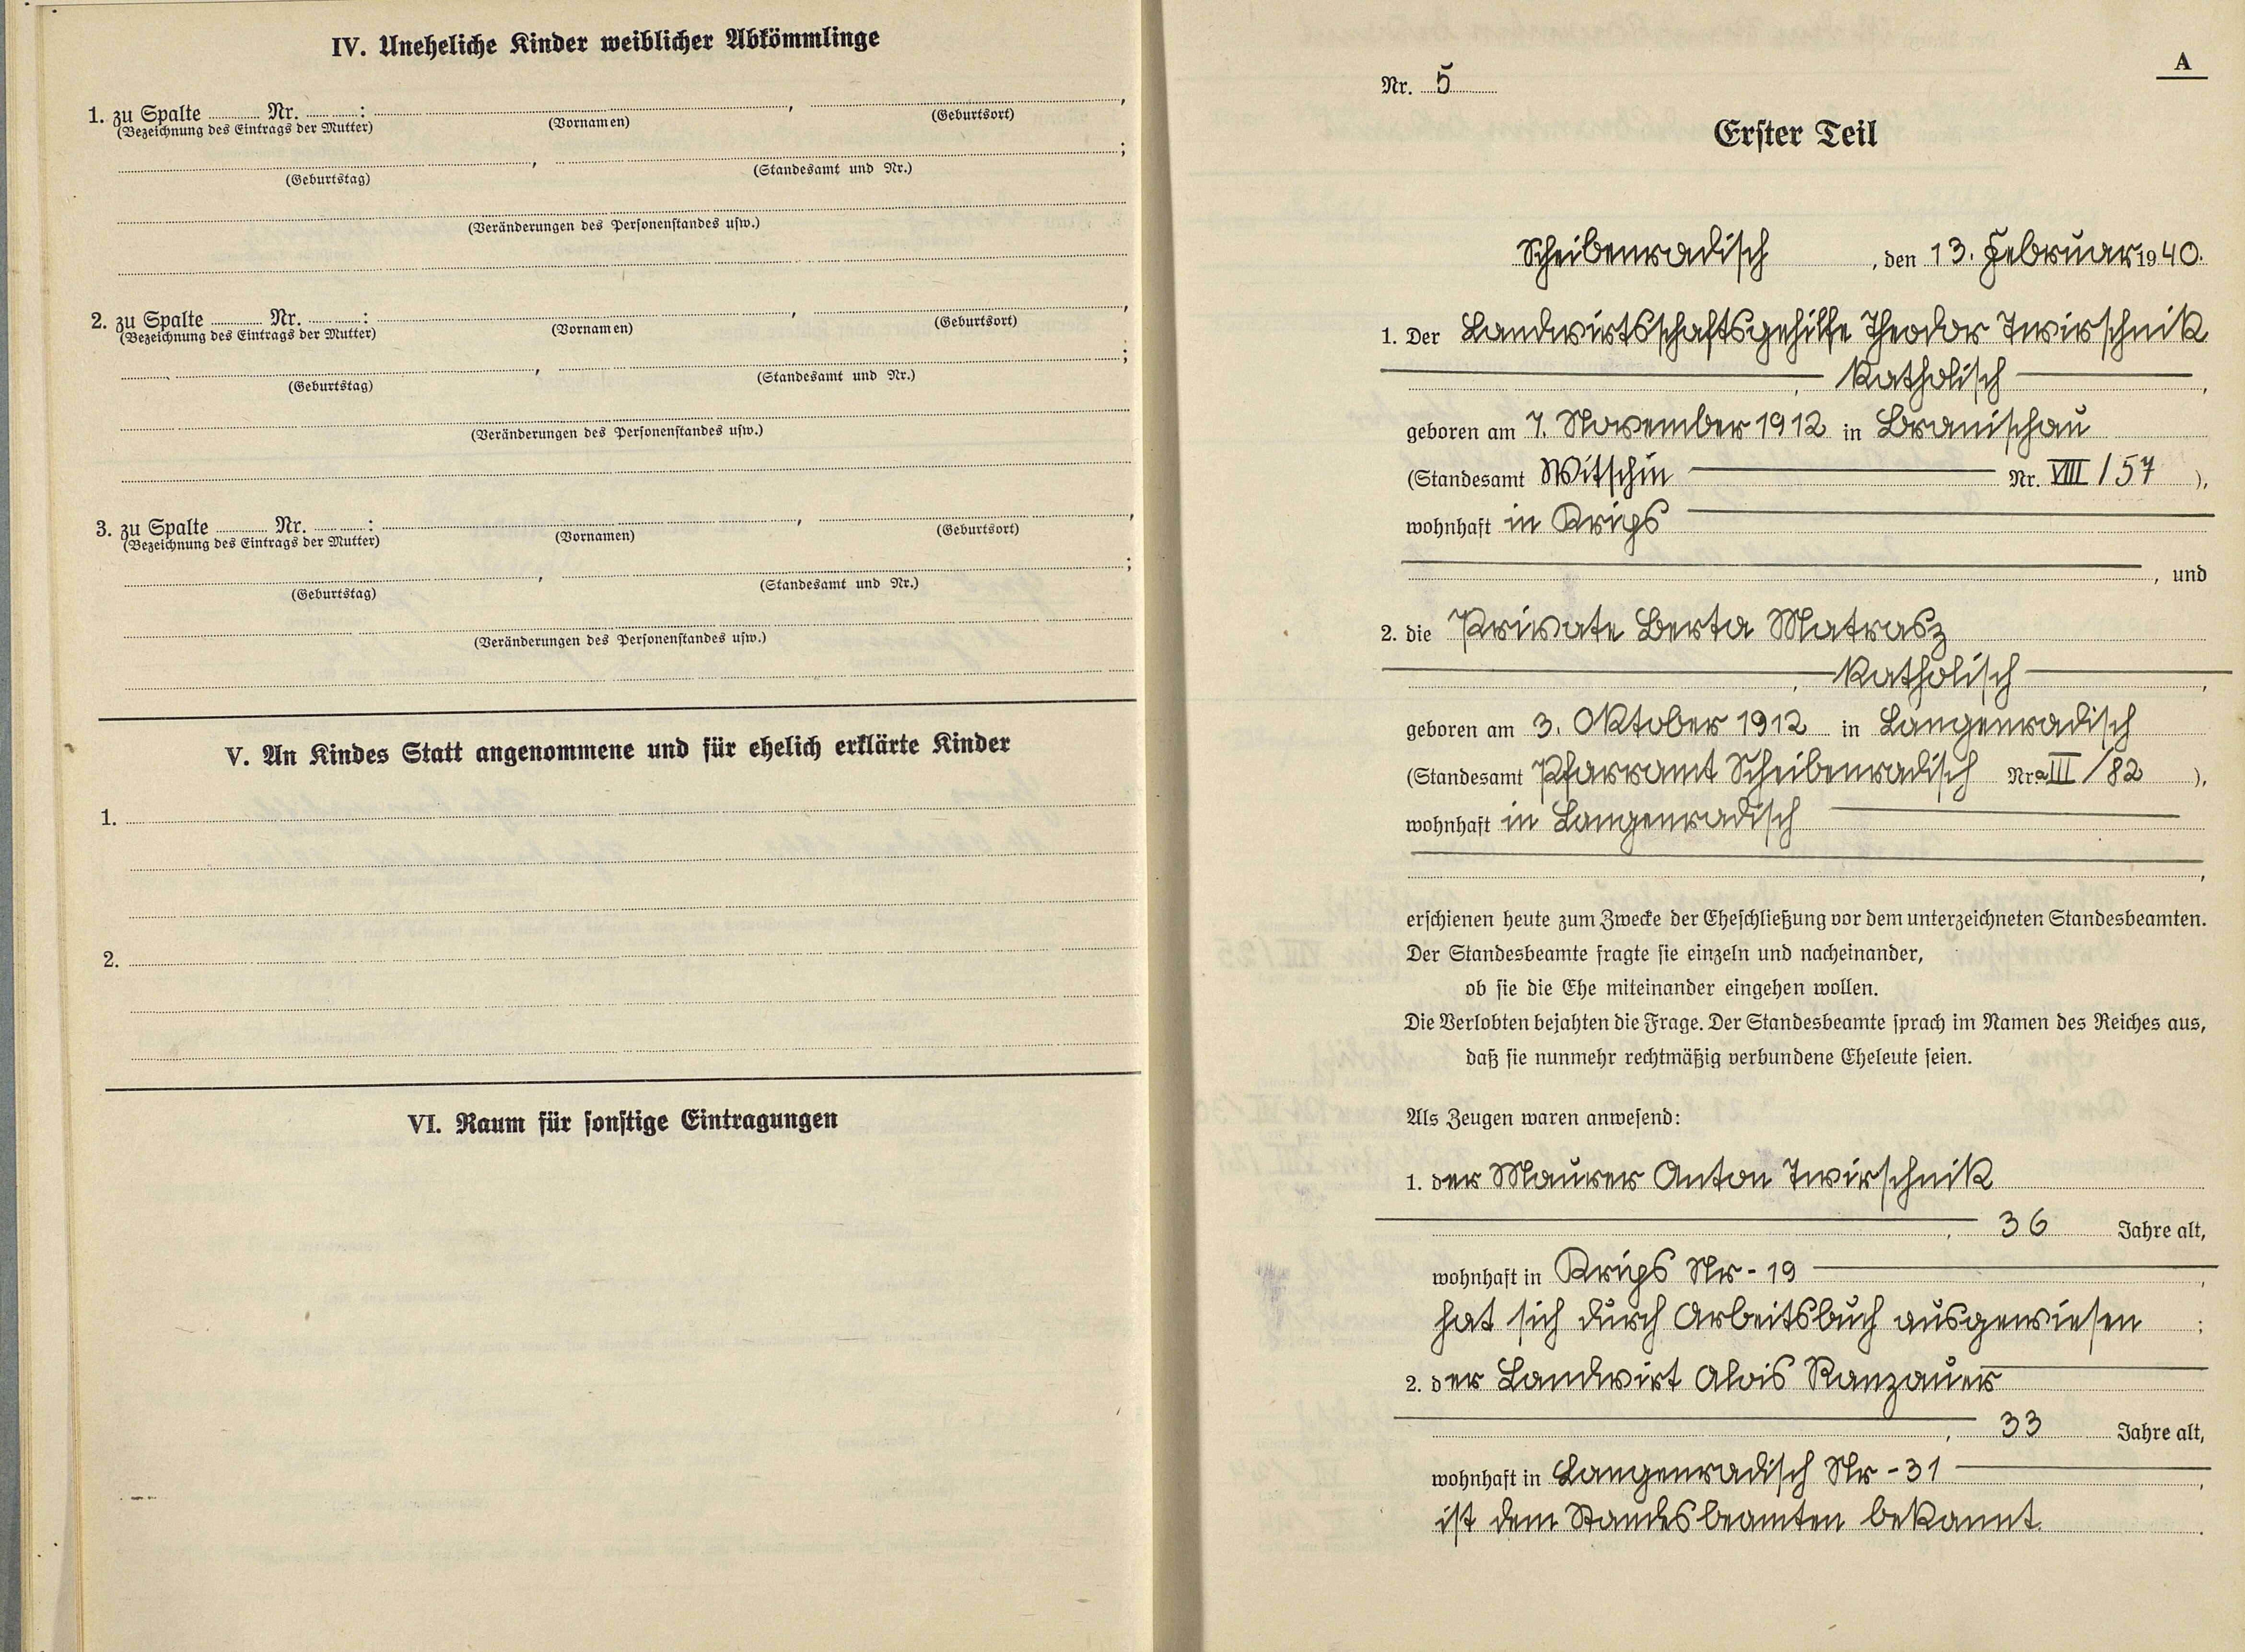 IV. Uneheliche Kinder weiblicher Abkömmlinge
1. zu Spalte ........ Nr. ........:
(Bezeichnung des Eintrags der Mutter) (Vornamen) (Geburtsort)
(Geburtstag) (Standesamt und Nr.)
(Veränderungen des Personenstandes usw.)
2. zu Spalte ........ Nr. ........:
(Bezeichnung des Eintrags der Mutter) (Vornamen) (Geburtsort)
(Geburtstag) (Standesamt und Nr.)
(Veränderungen des Personenstandes usw.)
3. zu Spalte ........ Nr. ........:
(Bezeichnung des Eintrags der Mutter) (Vornamen) (Geburtsort)
(Geburtstag) (Standesamt und Nr.)
(Veränderungen des Personenstandes usw.)
V. An Kindes Statt angenommene und für ehelich erklärte Kinder
1.
2.
VI. Raum für sonstige Eintragungen
A
Nr. 5
Erster Teil
Scheibenradisch, den 13. Februar 1940.
1. Der Landwirtsschaftsgehilfe Theodor Twirschnik
, Katholisch,
geboren am 7. November 1912 in Branischau
(Standesamt Witschin Nr. VIII/57),
wohnhaft in Krips
, und
2. die Private Berta Matrasz
, Katholisch,
geboren am 3. Oktober 1912 in Langenradisch
(Standesamt Pfarramt Scheibenradisch Nr. III/82),
wohnhaft in Langenradisch
,
erschienen heute zum Zwecke der Eheschließung vor dem unterzeichneten Standesbeamten.
Der Standesbeamte fragte sie einzeln und nacheinander,
ob sie die Ehe miteinander eingehen wollen.
Die Verlobten bejahten die Frage. Der Standesbeamte sprach im Namen des Reiches aus,
daß sie nunmehr rechtmäßig verbundene Eheleute seien.
Als Zeugen waren anwesend:
1. der Maurer Anton Twirschnik
, 36 Jahre alt,
wohnhaft in Krips Nr - 19,
hat sich durch Arbeitsbuch ausgewiesen;
2. der Landwirt Alois Ranzauer
, 33 Jahre alt,
wohnhaft in Langenradisch Nr - 31,
ist dem Standesbeamten bekannt.